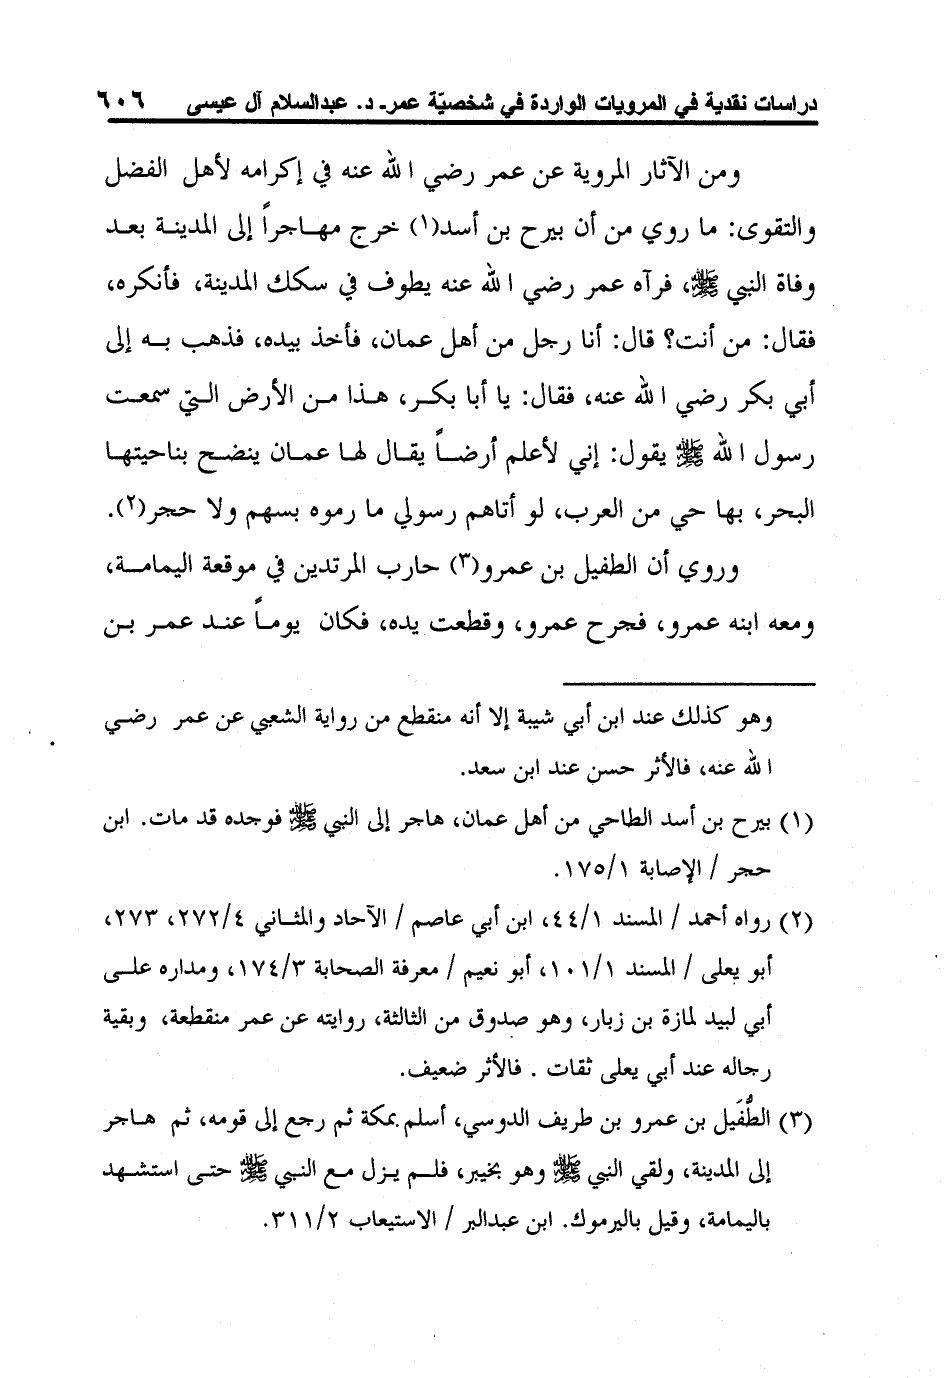 دراسات نقدية في المرويات الواردة في شخصيّة عمر- د. عبدالسلام آل عيسى ٦٠٦
ومن الآثار المروية عن عمر رضي الله عنه في إكرامه لأهل الفضل
والتقوى: ما روي من أن بيرح بن أسد(١) خرج مهاجراً إلى المدينة بعد
وفاة النبي ﷺ، فرآه عمر رضي الله عنه يطوف في سكك المدينة، فأنكره،
فقال: من أنت؟ قال: أنا رجل من أهل عمان، فأخذ بيده، فذهب به إلى
أبي بكر رضي الله عنه، فقال: يا أبا بكر، هذا من الأرض التي سمعت
رسول الله ﷺ يقول: إني لأعلم أرضاً يقال لها عمان ينضح بناحيتها
البحر، بها حي من العرب، لو أتاهم رسولي ما رموه بسهم ولا حجر(٢).
وروي أن الطفيل بن عمرو(٣) حارب المرتدين في موقعة اليمامة،
ومعه ابنه عمرو، فجرح عمرو، وقطعت يده، فكان يوماً عند عمر بن
وهو كذلك عند ابن أبي شيبة إلا أنه منقطع من رواية الشعبي عن عمر رضي
الله عنه، فالأثر حسن عند ابن سعد.
(١) بيرح بن أسد الطاحي من أهل عمان، هاجر إلى النبي ﷺ فوجده قد مات. ابن
حجر / الإصابة ١٧٥/١.
(٢) رواه أحمد / المسند ٤٤/١، ابن أبي عاصم / الآحاد والمثاني ٢٧٢/٤، ٢٧٣،
أبو يعلى / المسند ١٠١/١، أبو نعيم / معرفة الصحابة ١٧٤/٣، ومداره على
أبي لبيد لمازة بن زبار، وهو صدوق من الثالثة، روايته عن عمر منقطعة، وبقية
رجاله عند أبي يعلى ثقات . فالأثر ضعيف.
(٣) الطُّفَيل بن عمرو بن طريف الدوسي، أسلم بمكة ثم رجع إلى قومه، ثم هاجر
إلى المدينة، ولقي النبي ﷺ وهو بخيبر، فلم يزل مع النبي ﷺ حتى استشهد
باليمامة، وقيل باليرموك. ابن عبدالبر / الاستيعاب ٣١١/٢.